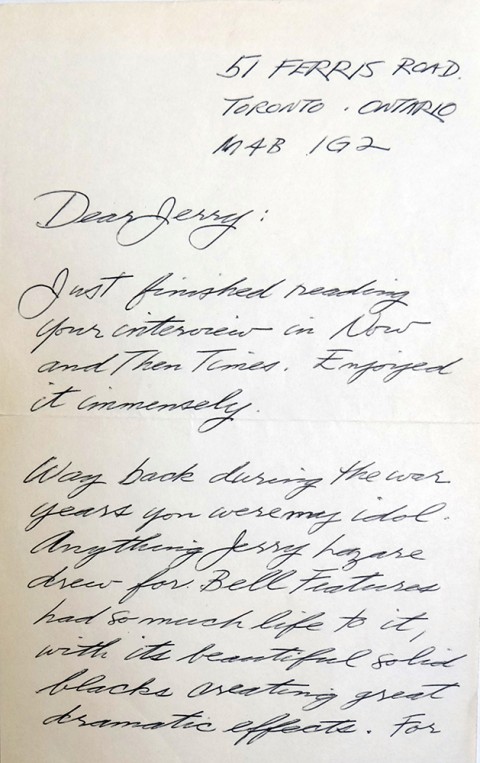 51 FERRIS ROAD.
TORONTO . ONTARIO
M4B 1G2
Dear Jerry:
Just finished reading
your interview in Now
and Then Times. Enjoyed
it immensely.
Way back during the war
years you were my idol.
Anything Jerry Lazare
drew for Bell Features
had so much life to it,
with its beautiful solid
blacks creating great
dramatic effects. For